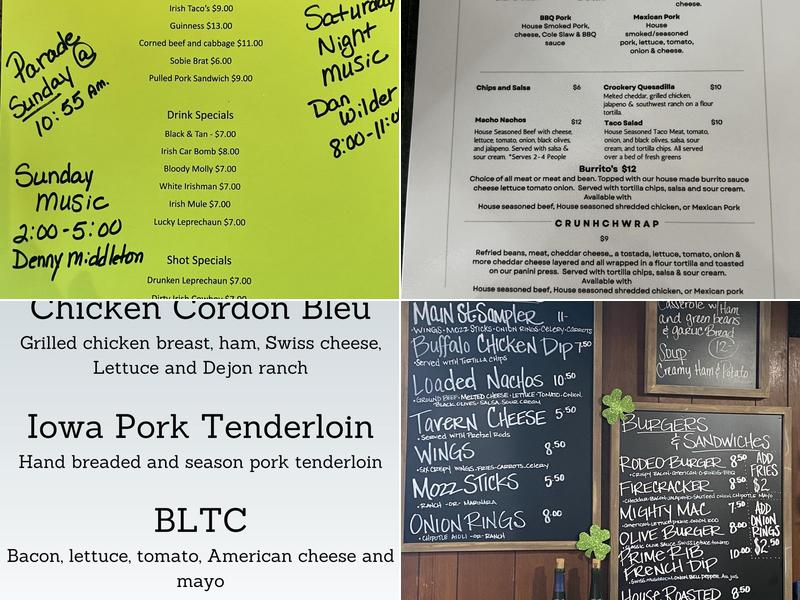 Irish Taco's $9.00
Guinness $13.00
Corned beef and cabbage $11.00
Sobie Brat $6.00
Pulled Pork Sandwich $9.00
Drink Specials
Black & Tan - $7.00
Irish Car Bomb $8.00
Bloody Molly $7.00
White Irishman $7.00
Irish Mule $7.00
Lucky Leprechaun $7.00
Shot Specials
Drunken Leprechaun $7.00
Dirty Irish Cowboy $7.00
Parade
Sunday @
10:55 Am.
Sunday
music
2:00-5:00
Denny Middleton
Saturday
Night
music
Dan
Wilder
8:00-11:00
cheese.
BBQ Pork
House Smoked Pork,
cheese, Cole Slaw & BBQ
sauce
Mexican Pork
House
smoked/seasoned
pork, lettuce, tomato,
onion & cheese.
Chips and Salsa $6
Macho Nachos $12
House Seasoned Beef with cheese,
lettuce, tomato, onion, black olives,
and jalapeno. Served with salsa &
sour cream. *Serves 2-4 People
Crockery Quesadilla $10
Melted cheddar, grilled chicken,
jalapeno & southwest ranch on a flour
tortilla.
Taco Salad $10
House Seasoned Taco Meat, tomato,
onion, and black olives, salsa, sour
cream, and tortilla chips. All served
over a bed of fresh greens
Burrito's $12
Choice of all meat or meat and bean. Topped with our house made burrito sauce
cheese lettuce tomato onion. Served with tortilla chips, salsa and sour cream.
Available with
House seasoned beef, House seasoned shredded chicken, or Mexican Pork
CRUNHCHWRAP
$9
Refried beans, meat, cheddar cheese,, a tostada, lettuce, tomato, onion &
more cheddar cheese layered and all wrapped in a flour tortilla and toasted
on our panini press. Served with tortilla chips, salsa & sour cream.
Available with
House seasoned beef, House seasoned shredded chicken, or Mexican pork
Chicken Cordon Bleu
Grilled chicken breast, ham, Swiss cheese,
Lettuce and Dejon ranch
Iowa Pork Tenderloin
Hand breaded and season pork tenderloin
BLTC
Bacon, lettuce, tomato, American cheese and
mayo
Main St. Sampler 11-
-Wings-Mozz Sticks-Onion Rings-Celery-Carrots
Buffalo Chicken Dip 7.50
-Served with Tortilla Chips
Loaded Nachos 10.50
-Ground Beef-Melted Cheese-Lettuce-Tomato-Onion-
Black Olives-Salsa-Sour Cream
Tavern Cheese 5.50
-Served with Pretzel Rods
Wings 8.50
-Six Crispy Wings-Fries-Carrots-Celery
Mozz Sticks 5.50
-Ranch -or- Marinara
Onion Rings 8.00
-Chipotle Aioli -or- Ranch
Casserole w/ Ham
and green beans
& garlic Bread
12-
Soup:
Creamy Ham & Potato
Burgers
& Sandwiches
Rodeo Burger 8.50
Firecracker 8.50
Mighty Mac 7.50
Olive Burger 8.00
Prime Rib
French Dip 10.00
House Roasted 8.50
Add
Fries
$2
Add
Onion
Rings
$2.50